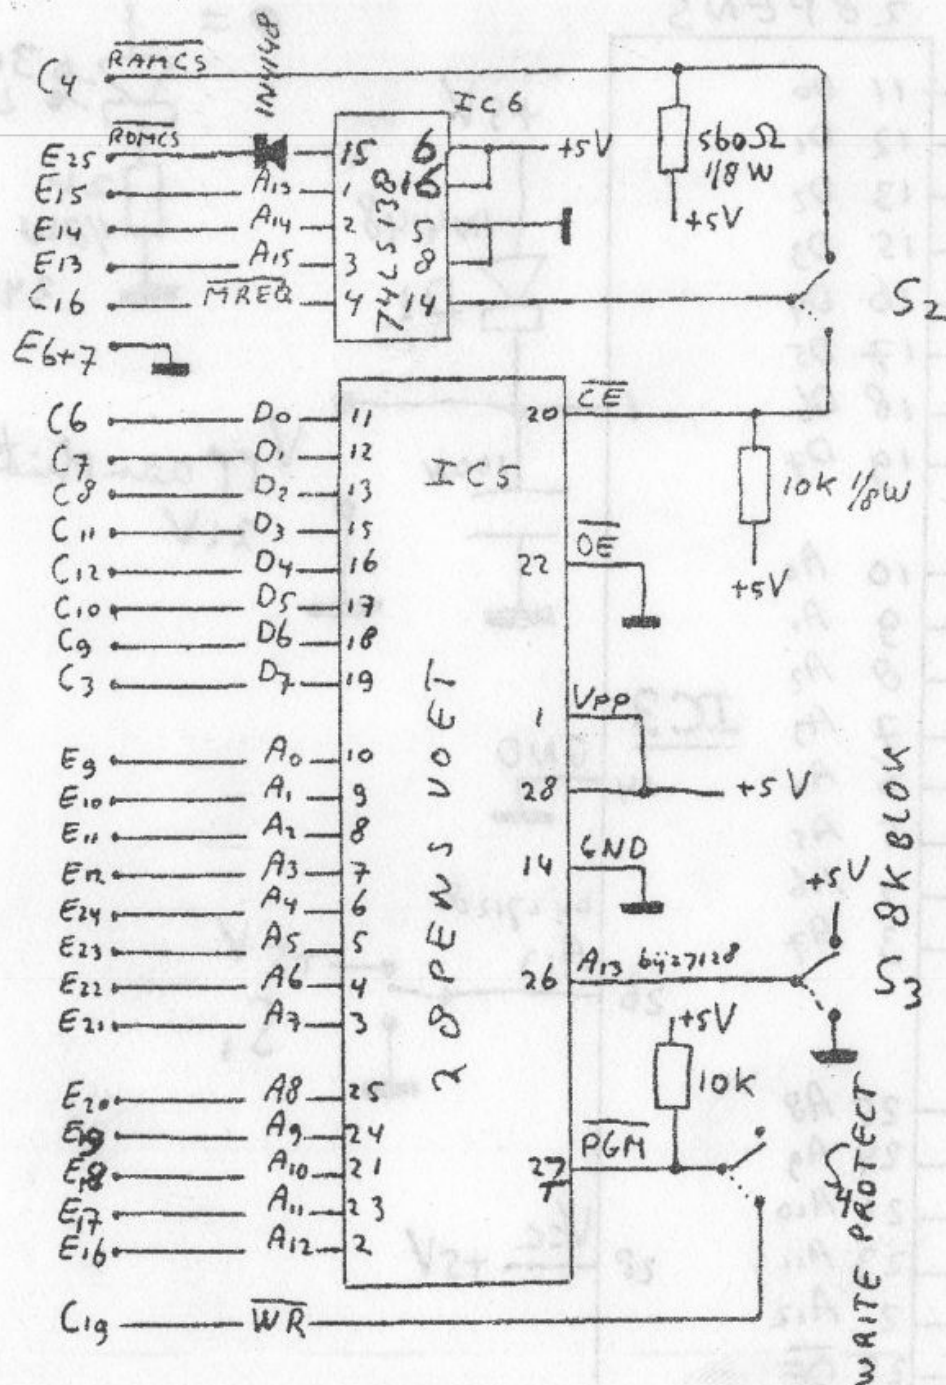 C4 RAMCS
1N4148
IC6
E25 ROMCS 15 6 +5V
E15 A13 1 16
E14 A14 2 5
E13 A15 3 8
C16 MREQ 4 14
74LS138
560Ω
1/8W
+5V
S2
E6+7
C6 D0 11
C7 D1 12
C8 D2 13
C11 D3 15
C12 D4 16
C10 D5 17
C9 D6 18
C3 D7 19
E9 A0 10
E10 A1 9
E11 A2 8
E12 A3 7
E24 A4 6
E23 A5 5
E22 A6 4
E21 A7 3
E20 A8 25
E19 A9 24
E18 A10 21
E17 A11 23
E16 A12 2
C19 WR
IC5
28 PENS VOET
20 CE
10K 1/8W
+5V
22 OE
1 VPP
28 +5V
14 GND
26 A13 bij 27128
+5V
S3 8K BLOK
+5V
10K
27 PGM
S4
WRITE PROTECT